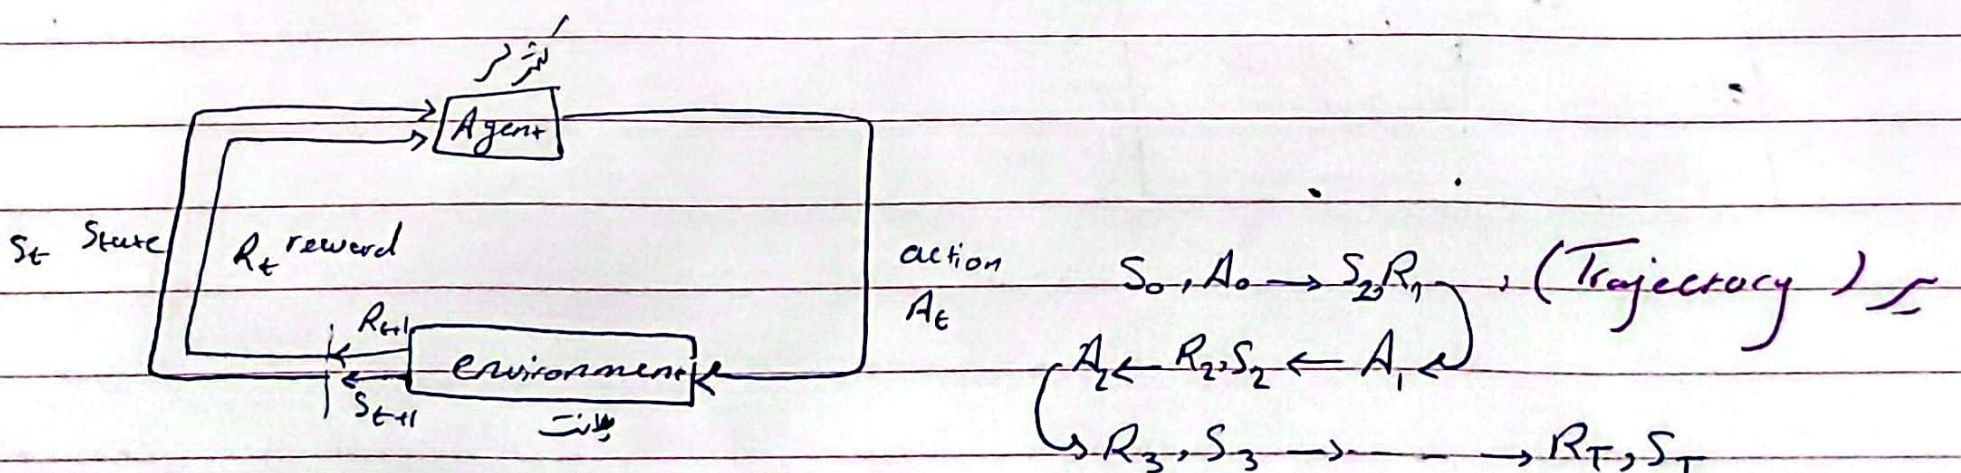 کنترلر
Agent
S_t State
R_t reward
action
A_t
R_{t+1}
environment
S_{t+1}
پلانت
S_0, A_0 → S_2, R_1, (Trajectory)
A_2 ← R_2, S_2 ← A_1
R_3, S_3 → → R_T, S_T